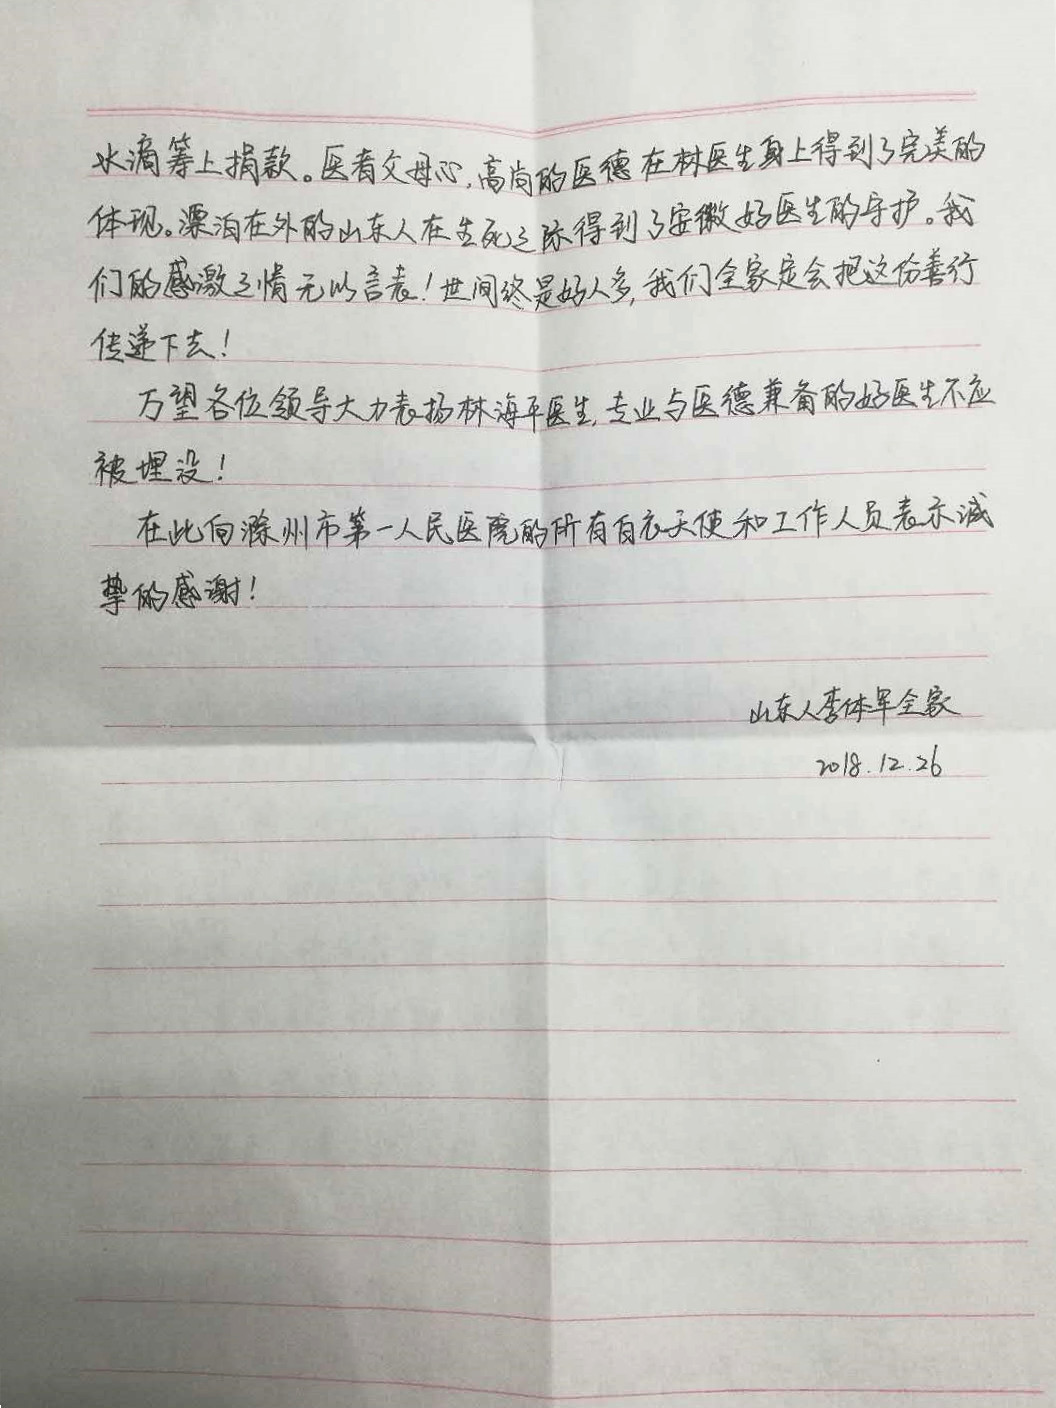 水滴筹上捐款。医者父母心，高尚的医德在林医生身上得到了完美的
体现。漂泊在外的山东人在生死之际得到了安徽好医生的守护。我
们的感激之情无以言表！世间终是好人多，我们全家定会把这份善行
传递下去！
万望各位领导大力表扬林海平医生，专业与医德兼备的好医生不应
被埋没！
在此向滁州市第一人民医院的所有白衣天使和工作人员表示诚
挚的感谢！
山东人李体军全家
2018.12.26